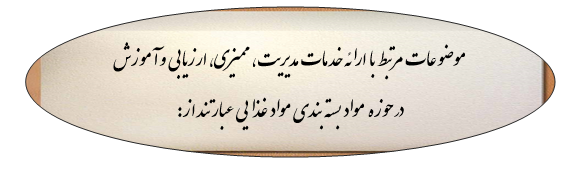 موضوعات مرتبط با ارائه خدمات مدیریت، ممیزی، ارزیابی و آموزش
در حوزه مواد بسته بندی مواد غذایی عبارتند از: